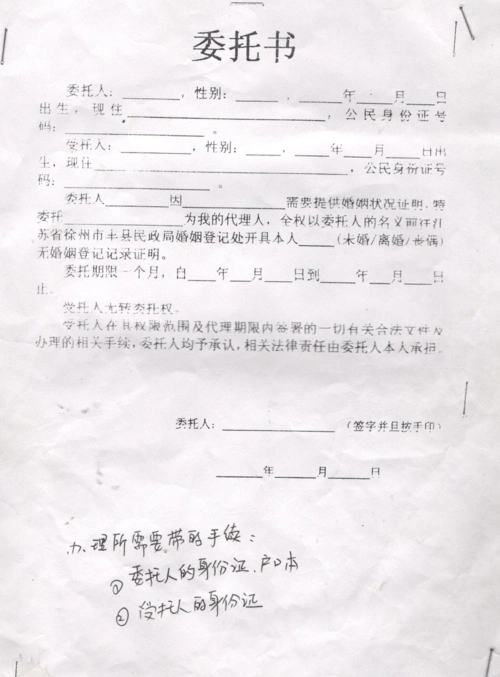 委托书
委托人：________，性别：____，______年____月____日
出生，现住____________________，公民身份证号
码：______________。
受托人：________，性别：____，____年____月____日出
生，现住____________________，公民身份证号
码：______________。
委托人________因__________需要提供婚姻状况证明，特
委托____________为我的代理人，全权以委托人的名义前往江
苏省徐州市丰县民政局婚姻登记处开具本人____（未婚/离婚/丧偶）
无婚姻登记记录证明。
委托期限一个月，自____年____月____日到____年____月____日
止。
受托人无转委托权。
受托人在其权限范围及代理期限内签署的一切有关合法文件及
办理的相关手续，委托人均予承认，相关法律责任由委托人本人承担。
委托人：____________（签字并且按手印）
______年______月______日
办理所需要带的手续：
①委托人的身份证、户口本
②受托人的身份证